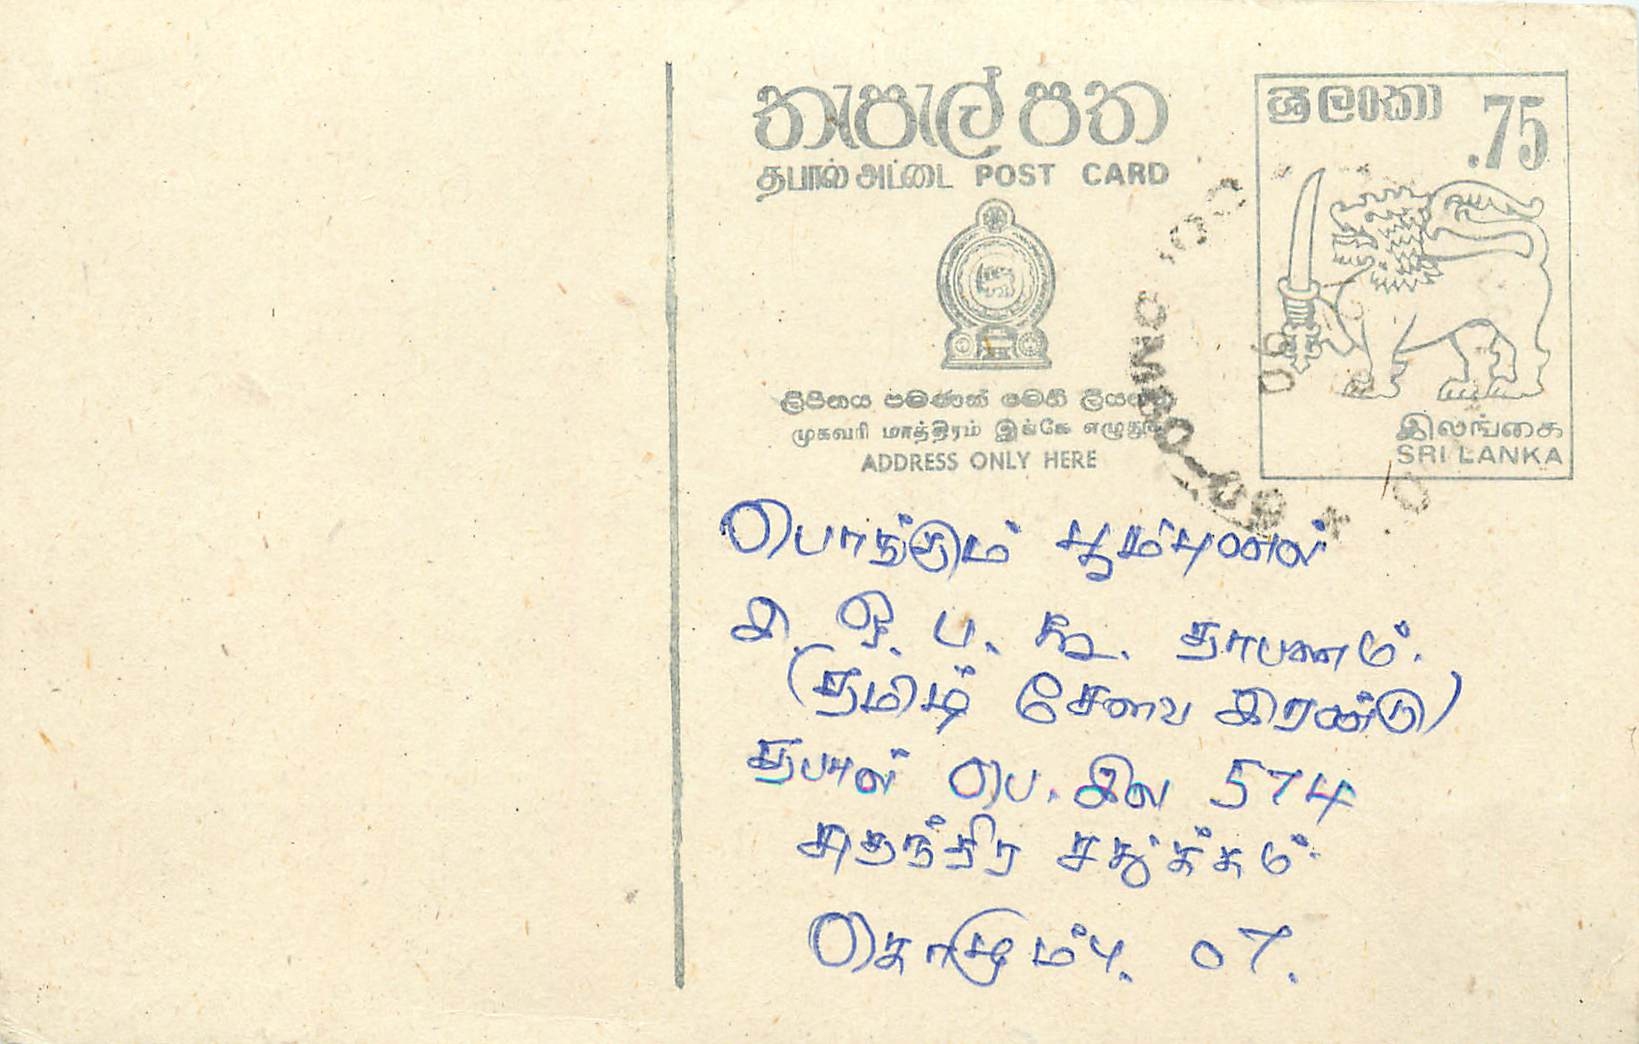 තැපැල් පත
தபால் அட்டை POST CARD
ශ්‍රී ලංකා .75
ලිපිනය පමණක් මෙහි ලියන්න
முகவரி மாத்திரம் இங்கே எழுதுக
ADDRESS ONLY HERE
இலங்கை
SRI LANKA
COLOMBO
பொங்கும் பூம்புனல்
இ. ஒ. ப. கூ. தாபனம்.
(தமிழ் சேவை இரண்டு)
தபால் பெ. இல 574
சுதந்திர சதுக்கம்.
கொழும்பு. 07.